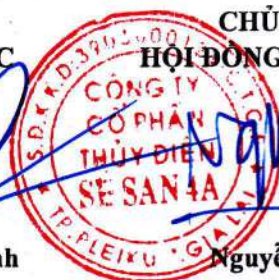 CHỦ
C HỘI ĐỒNG
CÔNG TY
CỔ PHẦN
THỦY ĐIỆN
SÊ SAN 4A
TP. PLEIKU - T. GIA LAI
nh Nguyễ